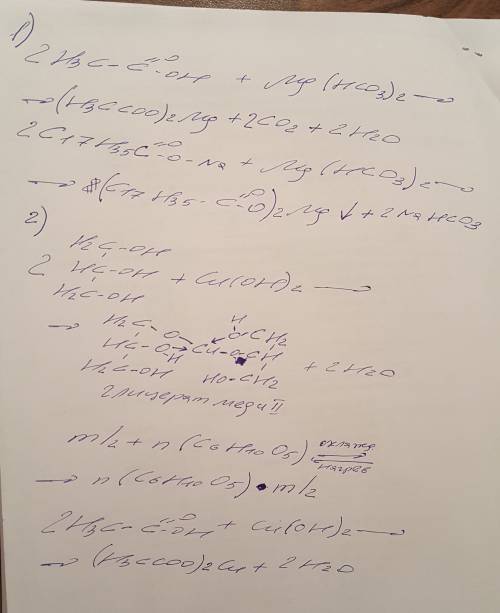 1)
2H3C-C=O-OH + Mg(HCO3)2→
→(H3CCOO)2Mg + 2CO2 + 2H2O
2C17H35C=O-O-Na + Mg(HCO3)2→
→(C17H35-C=O-O)2Mg↓ + 2NaHCO3
2)
H2C-OH
2 HC-OH + Cu(OH)2 →
H2C-OH
→ H2C-O H O-CH2
HC-O→Cu-O-CH + 2H2O
H
H2C-OH HO-CH2
глицерат меди II
mI2 + n(C6H10O5) охлажд ⇄ нагрев
→ n(C6H10O5)•mI2
2H3C-C=O-OH + Cu(OH)2 →
→ (H3CCOO)2Cu + 2H2O